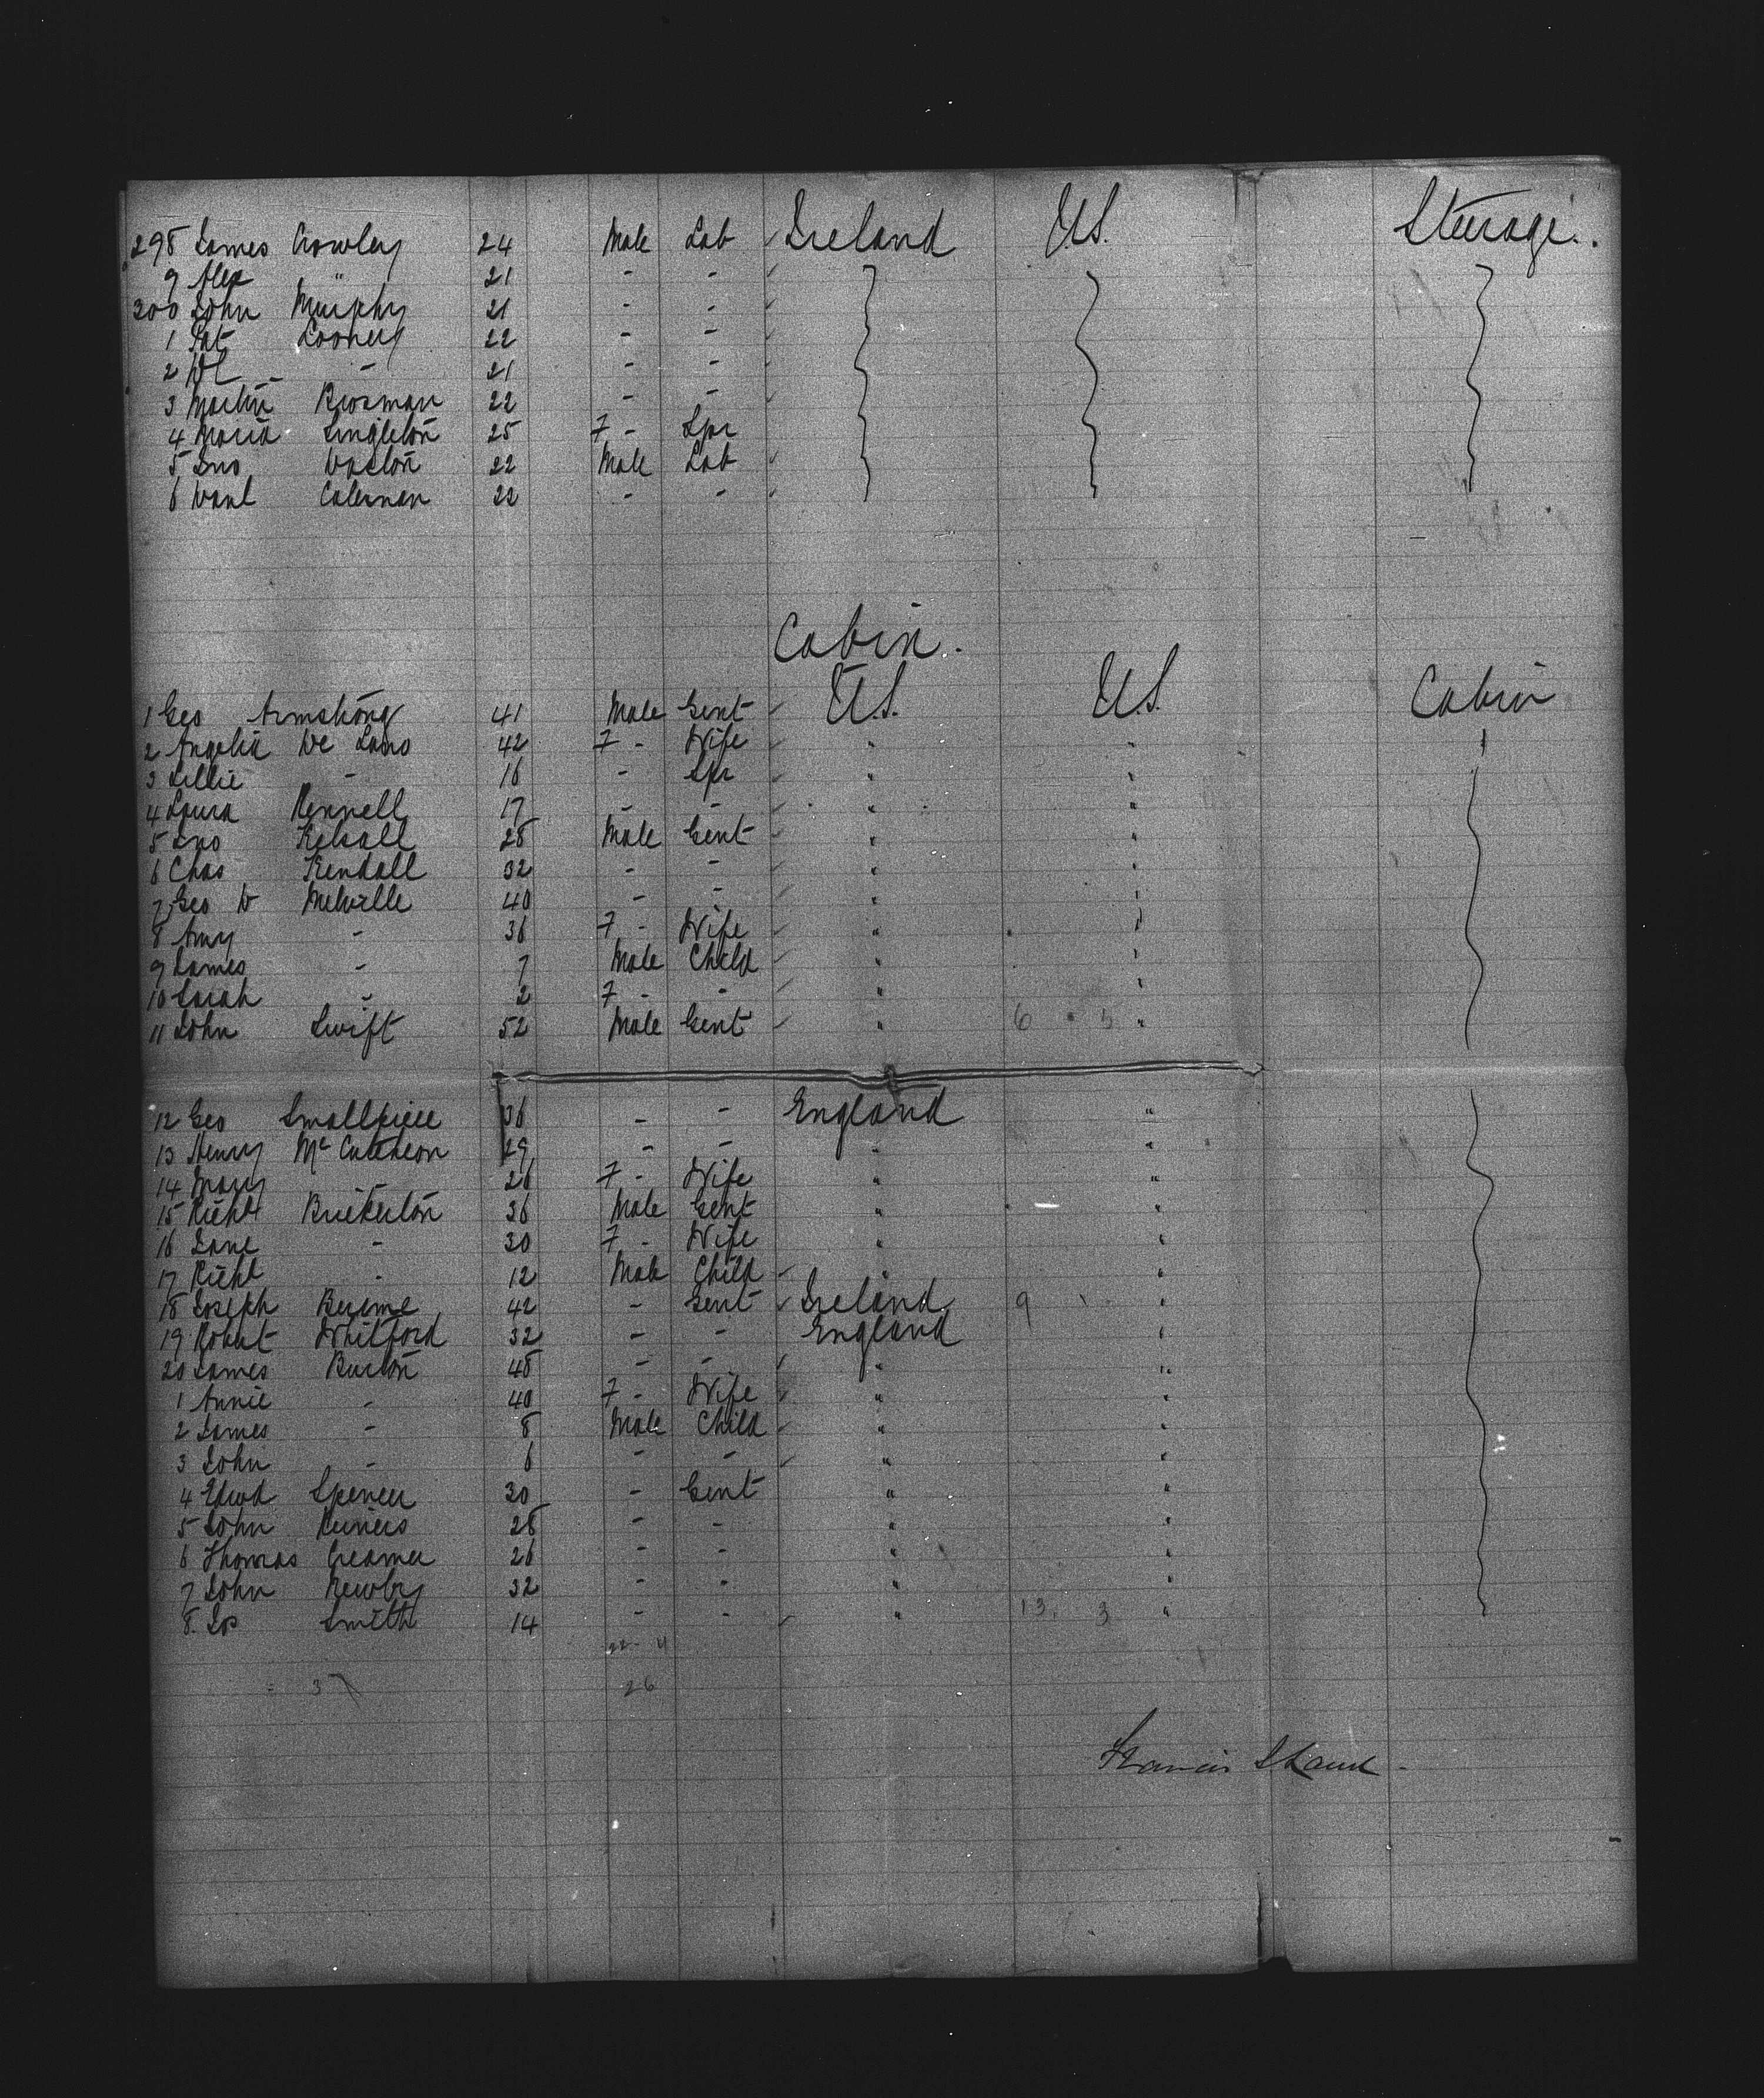 298 James Crowley 24 Male Lab Ireland U.S. Steerage.
9 Alex " 21 - -
300 John Murphy 21 - -
1 Pat Looney 22 - -
2 - 21 - -
3 Martin Brosman 22 - -
4 Maria Singleton 25 F - Spr
5 Jno 22 Male Lab
6 Coleman 22 - -
Cabin.
1 Geo Armstrong 41 Male Gent U.S. U.S. Cabin
2 Angelia De 42 F - Wife " "
3 Lillie - 16 - Spr " "
4 Laura 17 - - " "
5 Jno Kelsall 28 Male Gent " "
6 Chas Kendall 32 - - " "
7 Geo W Melville 40 - - " "
8 Amy - 36 F - Wife " "
9 James - 7 Male Child " "
10 Sarah - 2 F - - " "
11 John Swift 52 Male Gent " 6 5 "
12 Geo Smallpiece 36 - - England "
13 Henry Mc Cutcheon 29 - - " "
14 Mary - 26 F - Wife " "
15 Richd Bickerton 36 Male Gent " "
16 Jane - 30 F - Wife " "
17 Richd - 12 Male Child " "
18 Joseph 42 - Gent Ireland 9 "
19 Robert Whitford 32 - - England "
20 James Burton 48 - - " "
1 Annie - 40 F - Wife " "
2 James - 8 Male Child " "
3 John - 6 - - " "
4 Edwd Spencer 30 - Gent " "
5 John 28 - - " "
6 Thomas Creamer 26 - - " "
7 John Newby 32 - - " "
8. Jos Smith 14 - - " 13. 3 "
22 - 4
26
Francis